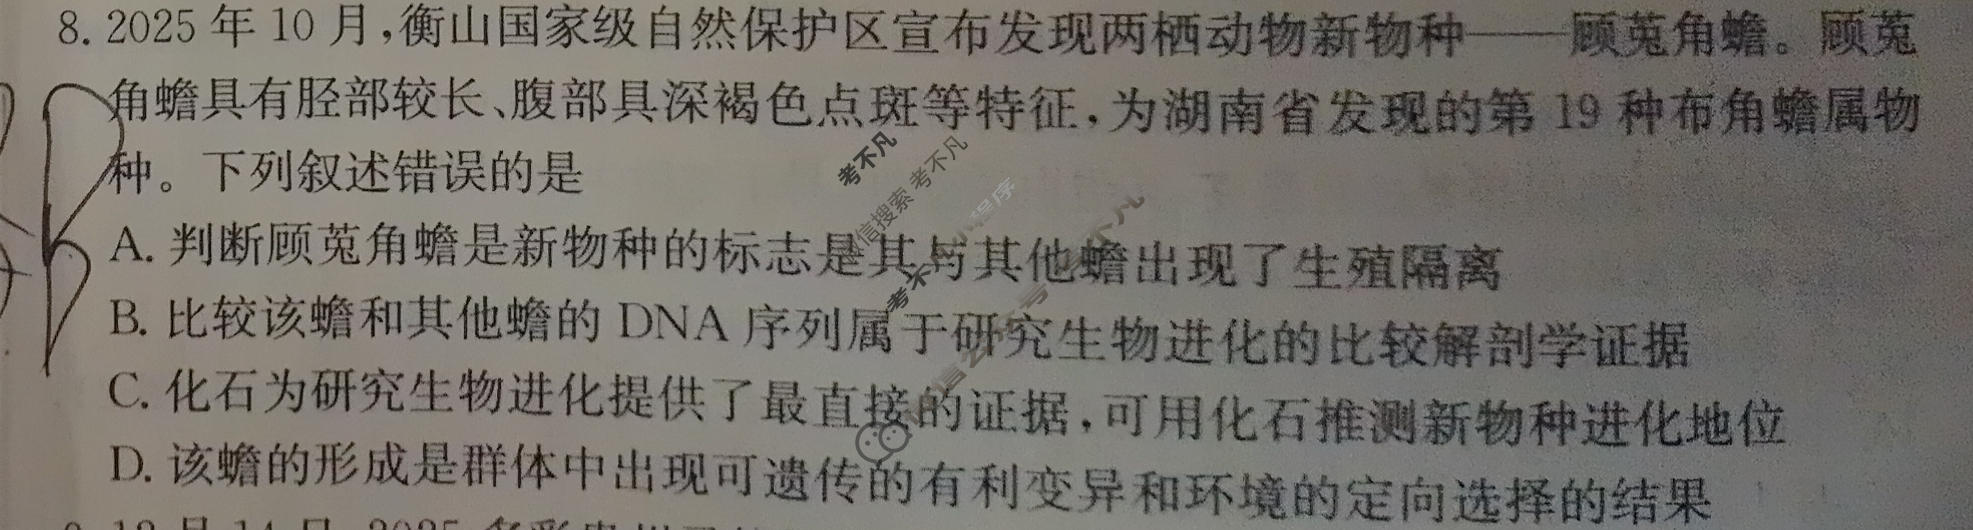 8. 2025 年 10 月,衡山国家级自然保护区宣布发现两栖动物新物种——顾菟角蟾。顾菟
角蟾具有胫部较长、腹部具深褐色点斑等特征,为湖南省发现的第 19 种布角蟾属物
种。下列叙述错误的是
A. 判断顾菟角蟾是新物种的标志是其与其他蟾出现了生殖隔离
B. 比较该蟾和其他蟾的 DNA 序列属于研究生物进化的比较解剖学证据
C. 化石为研究生物进化提供了最直接的证据,可用化石推测新物种进化地位
D. 该蟾的形成是群体中出现可遗传的有利变异和环境的定向选择的结果
B
考不凡
微信搜索 考不凡
小程序